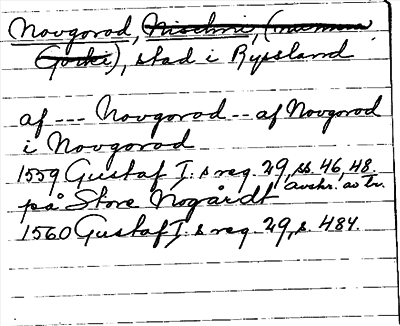 Novgorod, Nischni, (numera
Gorki), stad i Ryssland
af --- Novgorod -- af Novgorod
i Novgorod
1559 Gustaf I:s reg. 29, ss. 46, 48.
avskr. av br.
på Store Nogårdt
1560 Gustaf I:s reg. 29, s. 484.